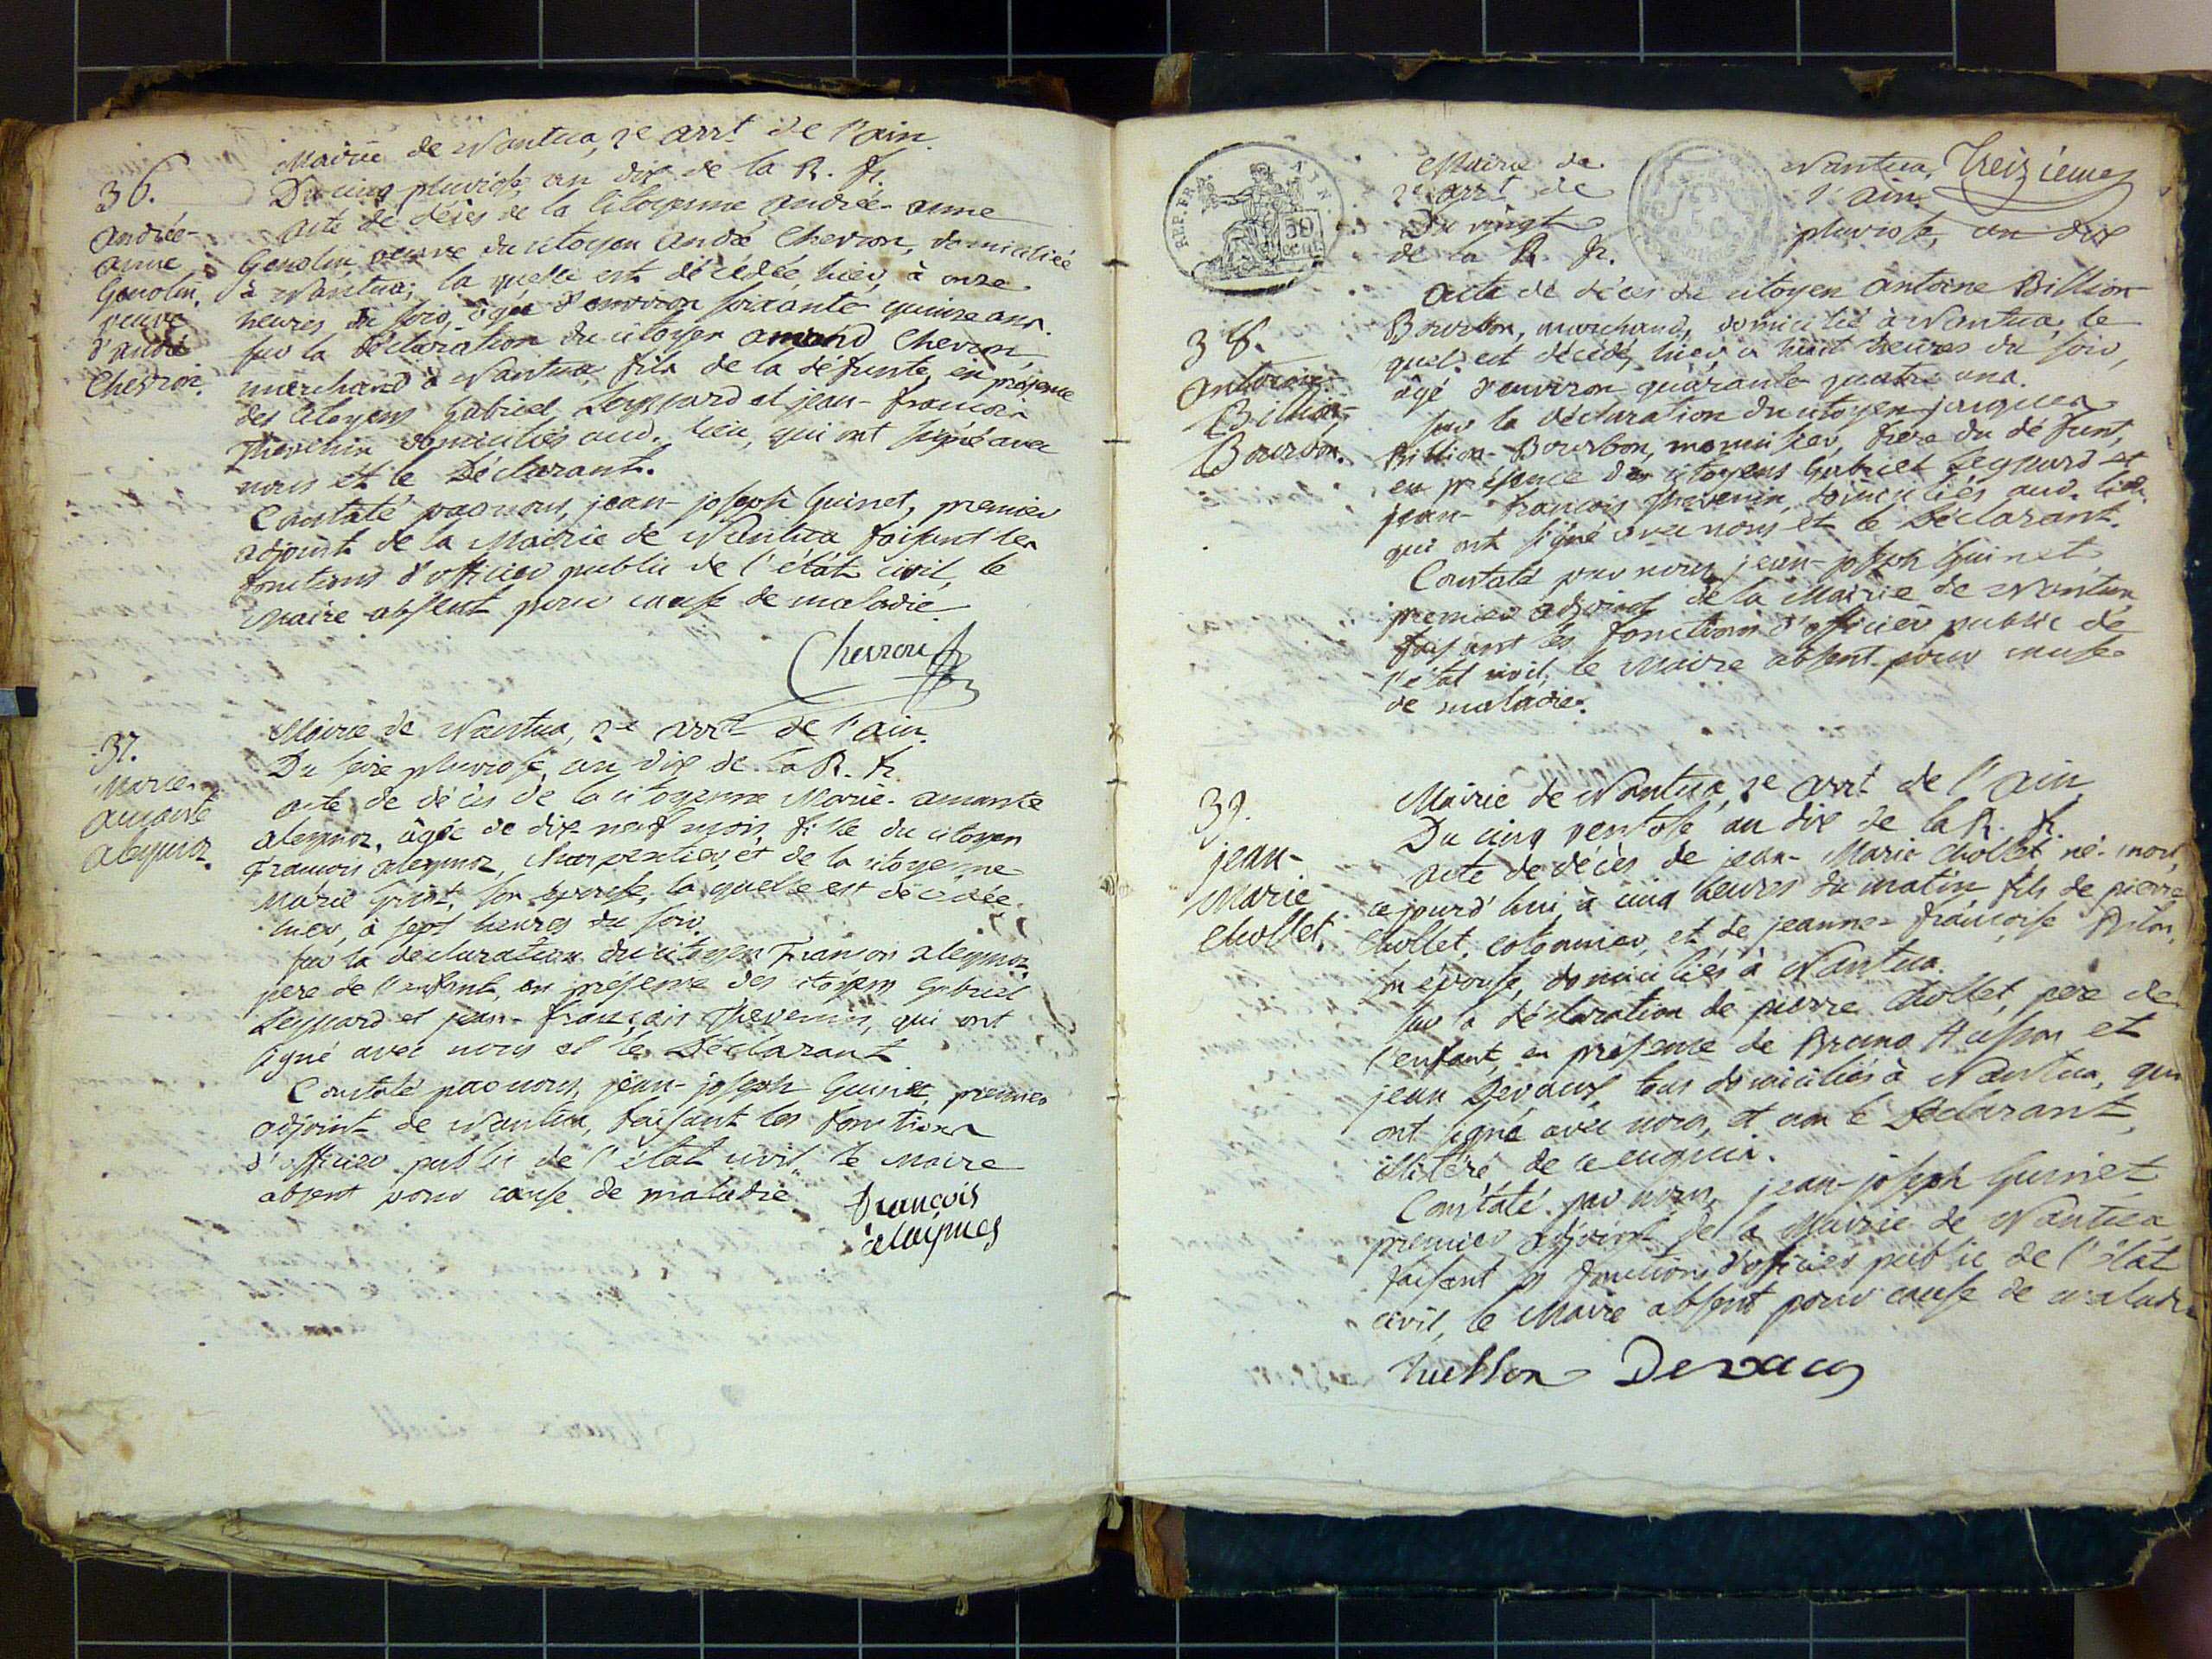 36.
andrée-
anne
Genolin,
veuve
d'andré
Chevron.
Mairie de Nantua, 2e arrt de l'ain.
Du cinq pluviose, an dix de la R. fr.
acte de décès de la Citoyenne andrée-anne
Genolin, veuve du citoyen André Chevron, domiciliée
à Nantua; la quelle est décédée, hier, à onze
heures du soir, âgée d'environ soixante quinze ans.
sur la déclaration du citoyen amand Chevron,
marchand à Nantua, fils de la défunte, en présence
des Citoyens Gabriel Leyssard et jean-francois
Thevenin domiciliés aud. lieu, qui ont signé avec
nous et le Déclarant.
Constaté par nous, jean-joseph Guinet, premier
adjoint de la Mairie de Nantua faisant les
fonctions d'officier public de l'état civil, le
Maire absent pour cause de maladie
Chevron
37.
Marie-
amante
aleymoz.
Mairie de Nantua, 2e arrt de l'ain.
Du seize pluviose, an dix de la R. fr.
acte de décès de la citoyenne Marie-amante
aleymoz, âgée de dix-neuf mois, fille du citoyen
François aleymoz, charpentier, et de la citoyenne
Marie son épouse, la quelle est décédée
hier, à sept heures du soir.
sur la déclaration du citoyen François aleymoz,
père de l'enfant, en présence des citoyens Gabriel
Leyssard et jean-français Thevenin, qui ont
signé avec nous et le Déclarant
Constaté par nous, jean-joseph Guinet, premier
adjoint de Nantua, faisant les fonctions
d'officier public de l'état civil, le Maire
absent pour cause de maladie.
François
REP. FRA.
AIN
50
cent
Mairie de Nantua, Treizieme
2e arrt de l'ain.
Du vingt pluviose, an dix
de la R. fr.
38.
Antoine
Billion-
Bourbon.
acte de décès du citoyen Antoine Billion-
Bourbon, marchand, domicilié à Nantua, le
quel est décédé, hier, à huit heures du soir,
âgé d'environ quarante quatre ans.
sur la déclaration du citoyen jacques
Billion-Bourbon, menuisier, frère du défunt,
en présence des citoyens Gabriel Leyssard et
jean-francois Thevenin, domiciliés aud. lieu,
qui ont signé avec nous et le Déclarant.
Constaté par nous, jean-joseph Guinet
premier adjoint de la Mairie de Nantua
faisant les fonctions d'officier public de
l'état civil, le Maire absent pour cause
de maladie.
39.
jean-
Marie
Chollet.
Mairie de Nantua, 2e arrt de l'ain
Du cinq ventose an dix de la R. fr.
acte de décès de jean-Marie Chollet né-mort,
cejourd'hui, à cinq heures du matin, fils de pierre
Chollet, cotonnier, et de jeanne-françoise
sa épouse, domiciliés à Nantua.
sur la déclaration de pierre Chollet, père de
l'enfant, en présence de Bruno Husson et
jean Devaux, tous domiciliés à Nantua, qui
ont signé avec nous, et non le Déclarant,
illitéré de ce enquis.
Constaté par nous, jean-joseph Guinet
premier adjoint de la Mairie de Nantua
faisant les fonctions d'officier public de l'état
civil, le Maire absent pour cause de maladie
husson Devaux